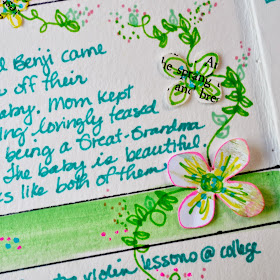 d Benji came
off their
aby. Mom kept
ing lovingly teased
being a Great-Grandma
The baby is beautiful
s like both of them
Al
he spring
and bre
violin lessons @ college